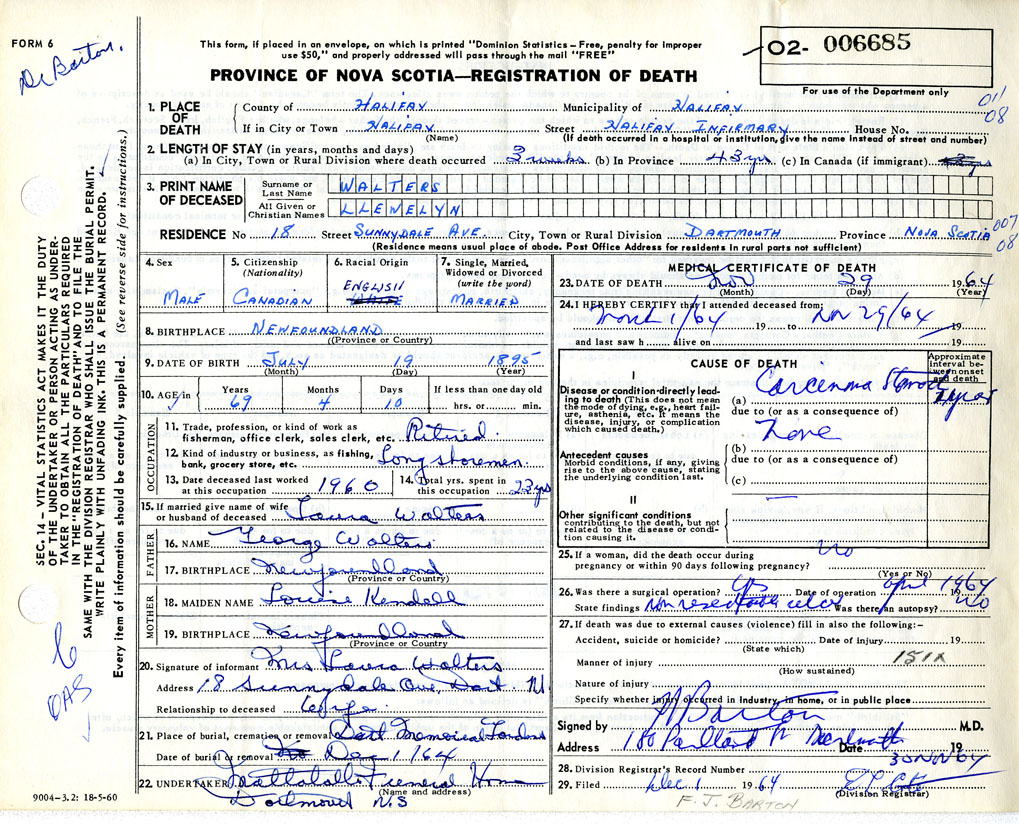 FORM 6
Dr Barton.
This form, if placed in an envelope, on which is printed "Dominion Statistics – Free, penalty for improper
use $50," and properly addressed will pass through the mail "FREE"
PROVINCE OF NOVA SCOTIA—REGISTRATION OF DEATH
02- 006685
For use of the Department only
011
08
1. PLACE OF DEATH
County of HALIFAX Municipality of HALIFAX
If in City or Town HALIFAX Street HALIFAX INFIRMARY House No.
(Name) (If death occurred in a hospital or institution, give the name instead of street and number)
2. LENGTH OF STAY (in years, months and days)
(a) In City, Town or Rural Division where death occurred 3 weeks (b) In Province 43 yrs (c) In Canada (if immigrant)
3. PRINT NAME OF DECEASED
Surname or Last Name WALTERS
All Given or Christian Names LLEWELYN
RESIDENCE No 18 Street SUNNYDALE AVE. City, Town or Rural Division DARTMOUTH Province NOVA SCOTIA
007
08
(Residence means usual place of abode. Post Office Address for residents in rural parts not sufficient)
4. Sex MALE
5. Citizenship (Nationality) CANADIAN
6. Racial Origin ENGLISH
7. Single, Married, Widowed or Divorced (write the word) MARRIED
8. BIRTHPLACE NEWFOUNDLAND
((Province or Country)
9. DATE OF BIRTH JULY 19 1895
(Month) (Day) (Year)
10. AGE in Years 69 Months 4 Days 10 If less than one day old hrs. or min.
OCCUPATION
11. Trade, profession, or kind of work as fisherman, office clerk, sales clerk, etc. Retired.
12. Kind of industry or business, as fishing, bank, grocery store, etc. Longshoremen.
13. Date deceased last worked at this occupation 1960
14. Total yrs. spent in this occupation 23 yrs
15. If married give name of wife or husband of deceased Laura Walters
FATHER
16. NAME George Walters
17. BIRTHPLACE Newfoundland
(Province or Country)
MOTHER
18. MAIDEN NAME Louise Kendell
19. BIRTHPLACE Newfoundland
(Province or Country)
20. Signature of informant Mrs Laura Walters
Address 18 Sunnydale Ave, Dart. N.
Relationship to deceased Wife
21. Place of burial, cremation or removal Dart Memorial Gardens
Date of burial or removal Dec 1/64
22. UNDERTAKER Funeral Home
(Name and address)
Dartmouth N.S
9004–3.2: 18-5-60
MEDICAL CERTIFICATE OF DEATH
23. DATE OF DEATH Nov 29 1964
(Month) (Day) (Year)
24. I HEREBY CERTIFY that I attended deceased from:
1/64 19 to Nov 29/64 19
and last saw h alive on 19
CAUSE OF DEATH
Approximate interval between onset and death
I
Disease or condition directly leading to death (This does not mean the mode of dying, e.g., heart failure, asthenia, etc. It means the disease, injury, or complication which caused death.)
(a) Carcinoma
due to (or as a consequence of)
None
Antecedent causes
Morbid conditions, if any, giving rise to the above cause, stating the underlying condition last.
(b)
due to (or as a consequence of)
(c)
II
Other significant conditions
contributing to the death, but not related to the disease or condition causing it.
25. If a woman, did the death occur during pregnancy or within 90 days following pregnancy? No
(Yes or No)
26. Was there a surgical operation? yes Date of operation April 1964
State findings Was there an autopsy? No
27. If death was due to external causes (violence) fill in also the following:–
Accident, suicide or homicide? Date of injury 19
(State which)
151X
Manner of injury
(How sustained)
Nature of injury
Specify whether injury occurred in industry, in home, or in public place
Signed by Barton M.D.
Address Date 30 Nov 64 19
28. Division Registrar's Record Number
29. Filed Dec 1 1964
(Division Registrar)
F. J. BARTON
SEC. 14—VITAL STATISTICS ACT MAKES IT THE DUTY
OF THE UNDERTAKER OR PERSON ACTING AS UNDER-
TAKER TO OBTAIN ALL THE PARTICULARS REQUIRED
IN THE "REGISTRATION OF DEATH" AND TO FILE THE
SAME WITH THE DIVISION REGISTRAR WHO SHALL ISSUE THE BURIAL PERMIT.
WRITE PLAINLY WITH UNFADING INK. THIS IS A PERMANENT RECORD.
Every item of information should be carefully supplied. (See reverse side for instructions.)
OAS